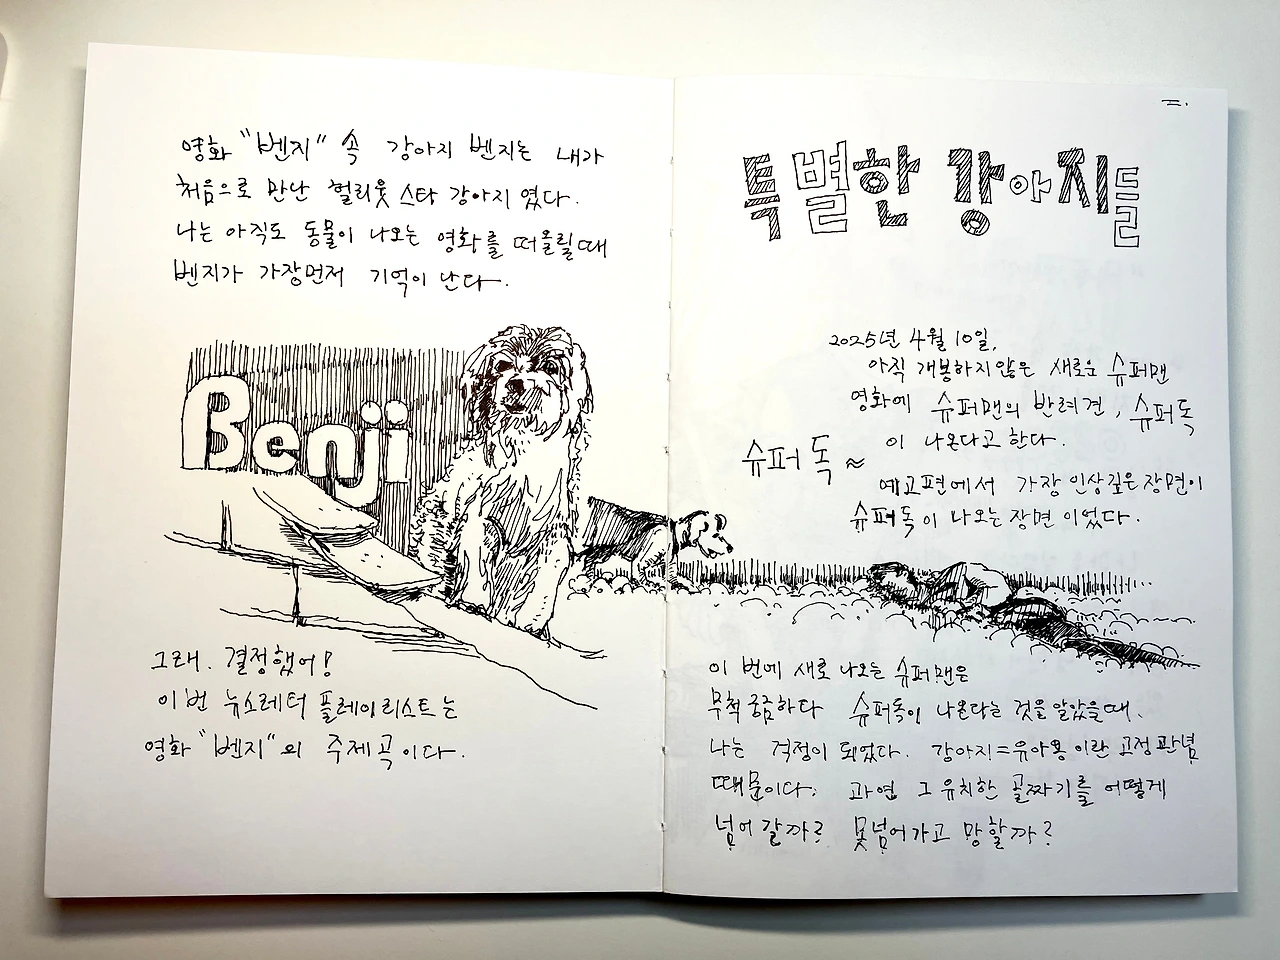 영화 "벤지" 속 강아지 벤지는 내가
처음으로 만난 헐리웃 스타 강아지 였다.
나는 아직도 동물이 나오는 영화를 떠올릴때
벤지가 가장먼저 기억이 난다.
Benji
그래. 결정했어!
이번 뉴스레터 플레이리스트는
영화 "벤지"의 주제곡이다.
특별한 강아지들
2025년 4월 10일,
아직 개봉하지않은 새로운 슈퍼맨
영화에 슈퍼맨의 반려견, 슈퍼독
이 나온다고 한다.
슈퍼독 ≈
예고편에서 가장 인상깊은 장면이
슈퍼독이 나오는 장면 이었다.
이 번에 새로 나오는 슈퍼맨은
무척 궁금하다 슈퍼독이 나온다는 것을 알았을때,
나는 걱정이 되었다. 강아지=유아용 이란 고정관념
때문이다. 과연 그 유치한 골짜기를 어떻게
넘어 갈까? 못넘어가고 망할까?